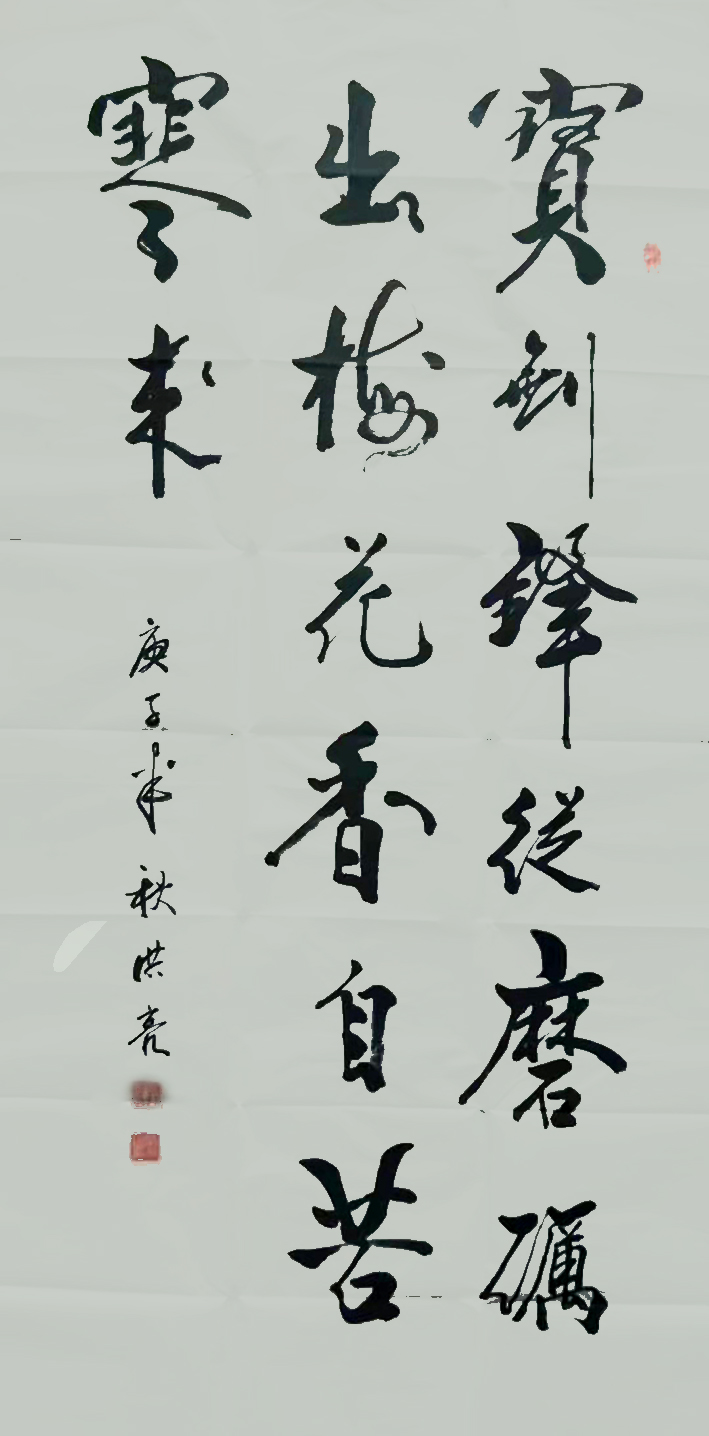 寳劍鋒從磨礪
出梅花香自苦
寒来
庚子年秋洪亮